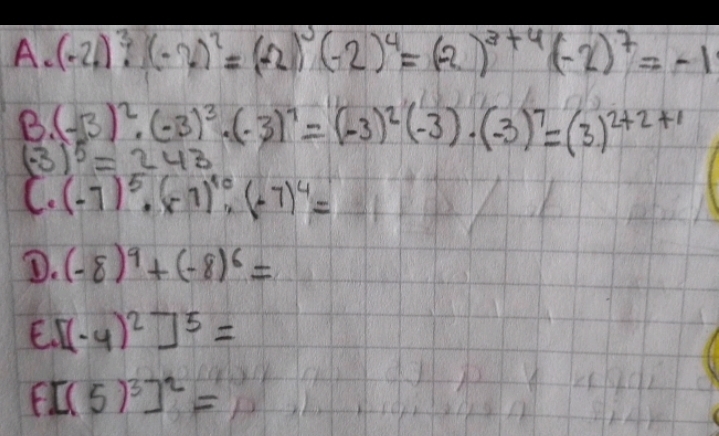 A. (-2)³ . (-2)² = (-2)³ (-2)⁴ = (-2)³⁺⁴ (-2)⁷ = -1
B. (-3)² . (-3)³ . (-3)¹ = (-3)² (-3) . (-3)⁷ = (3)²⁺²⁺¹
(-3)⁵ = 243
C. (-7)⁵ . (-7)¹⁰ . (-7)⁴ =
D. (-8)⁹ + (-8)⁶ =
E. [(-4)²]⁵ =
F [(5)³]² =